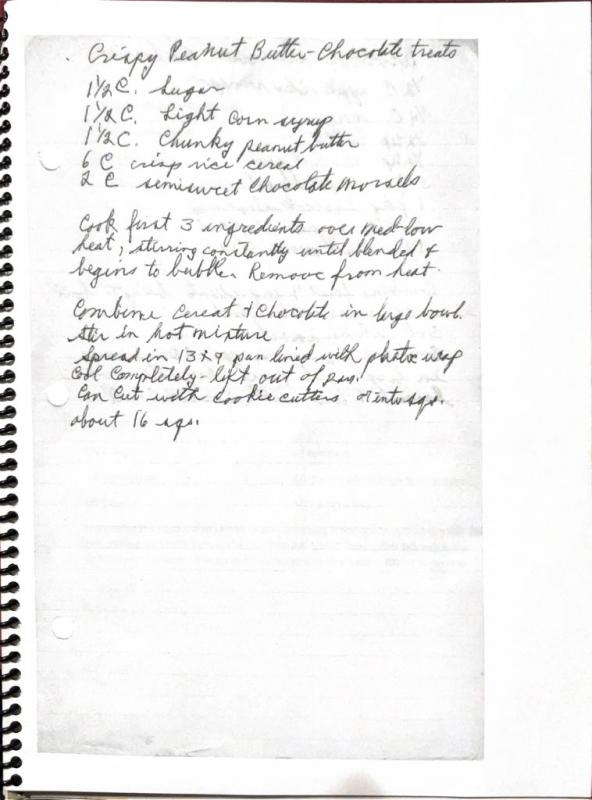 Crispy Peanut Butter-Chocolate treats
1 1/2 C. Sugar
1 1/2 C. Light Corn syrup
1 1/2 C. Chunky peanut butter
6 C crisp rice cereal
2 C semisweet Chocolate Morsels
Cook first 3 ingredients over med-low
heat, stirring constantly until blended &
begins to bubble. Remove from heat.
Combine Cereal & Chocolate in large bowl.
Stir in hot mixture
Spread in 13x9 pan lined with plastic wrap
Cool Completely - lift out of pan.
Can Cut with cookie cutters or into sqs.
about 16 sqs.